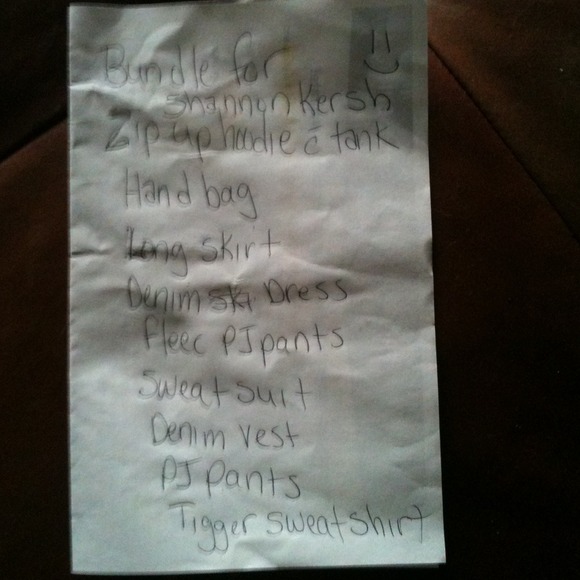 Bundle for
Shannyn Kersh
Zip up hoodie c̄ tank
Hand bag
Long skirt
Denim ski Dress
fleec PJ pants
Sweat suit
Denim vest
PJ Pants
Tigger sweat shirt